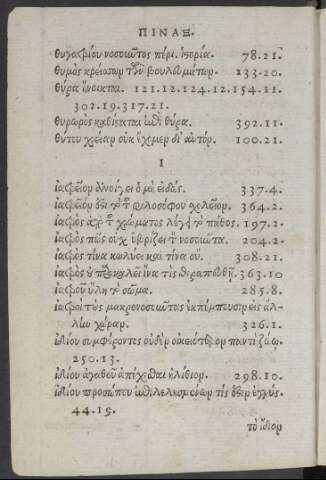 ΠΙΝΑΞ.
θυγατρίου νοσοῦντος πέρι ἱστορία. 78.21.
θυμὸς κρείσσων τῶν βουλευμάτων. 133.20.
θύρα ἤνοικται. 121.12.124.12.154.11.
302.19.317.21.
θυρωρὸς καθίσταται ἐπὶ θύρα. 392.11.
θύτου χρείαν οὐκ ἔχομεν δι' αὐτόν. 100.21.
Ι
ἰατρεῖον ἀνοίγει ὁ μὴ εἰδὼς. 337.4.
ἰατρεῖον ὅτι τὸ τοῦ φιλοσόφου σχολεῖον. 364.2.
ἰατρὸς ἀπὸ τοῦ χρώματος λέγει τὸ πάθος. 197.2.
ἰατρὸς πῶς οὐχ ὑβρίζει τὸν νοσοῦντα. 204.2.
ἰατρὸς τίνα κωλύει καὶ τίνα οὔ. 308.21.
ἰατρὸς οὐ παρακαλεῖ ἵνα τὶς θεραπευθῇ. 363.10
ἰατροῦ ὕλη τὸ σῶμα. 285.8.
ἰατροὶ τοὺς μακρονοσοῦντας ἐκπέμπουσιν εἰς ἄλ-
λην χώραν. 326.1.
ἰδίου συμφέροντος οὐδὲν οἰκειότερον παντὶ ζώῳ.
250.13.
ἰδίου ἀγαθοῦ ἀπέχεσθαι ἠλίθιον. 298.10.
ἰδίου προσώπου τίς ἐστιν ἐγγύς.
44.19.
τὸ ἴδιον